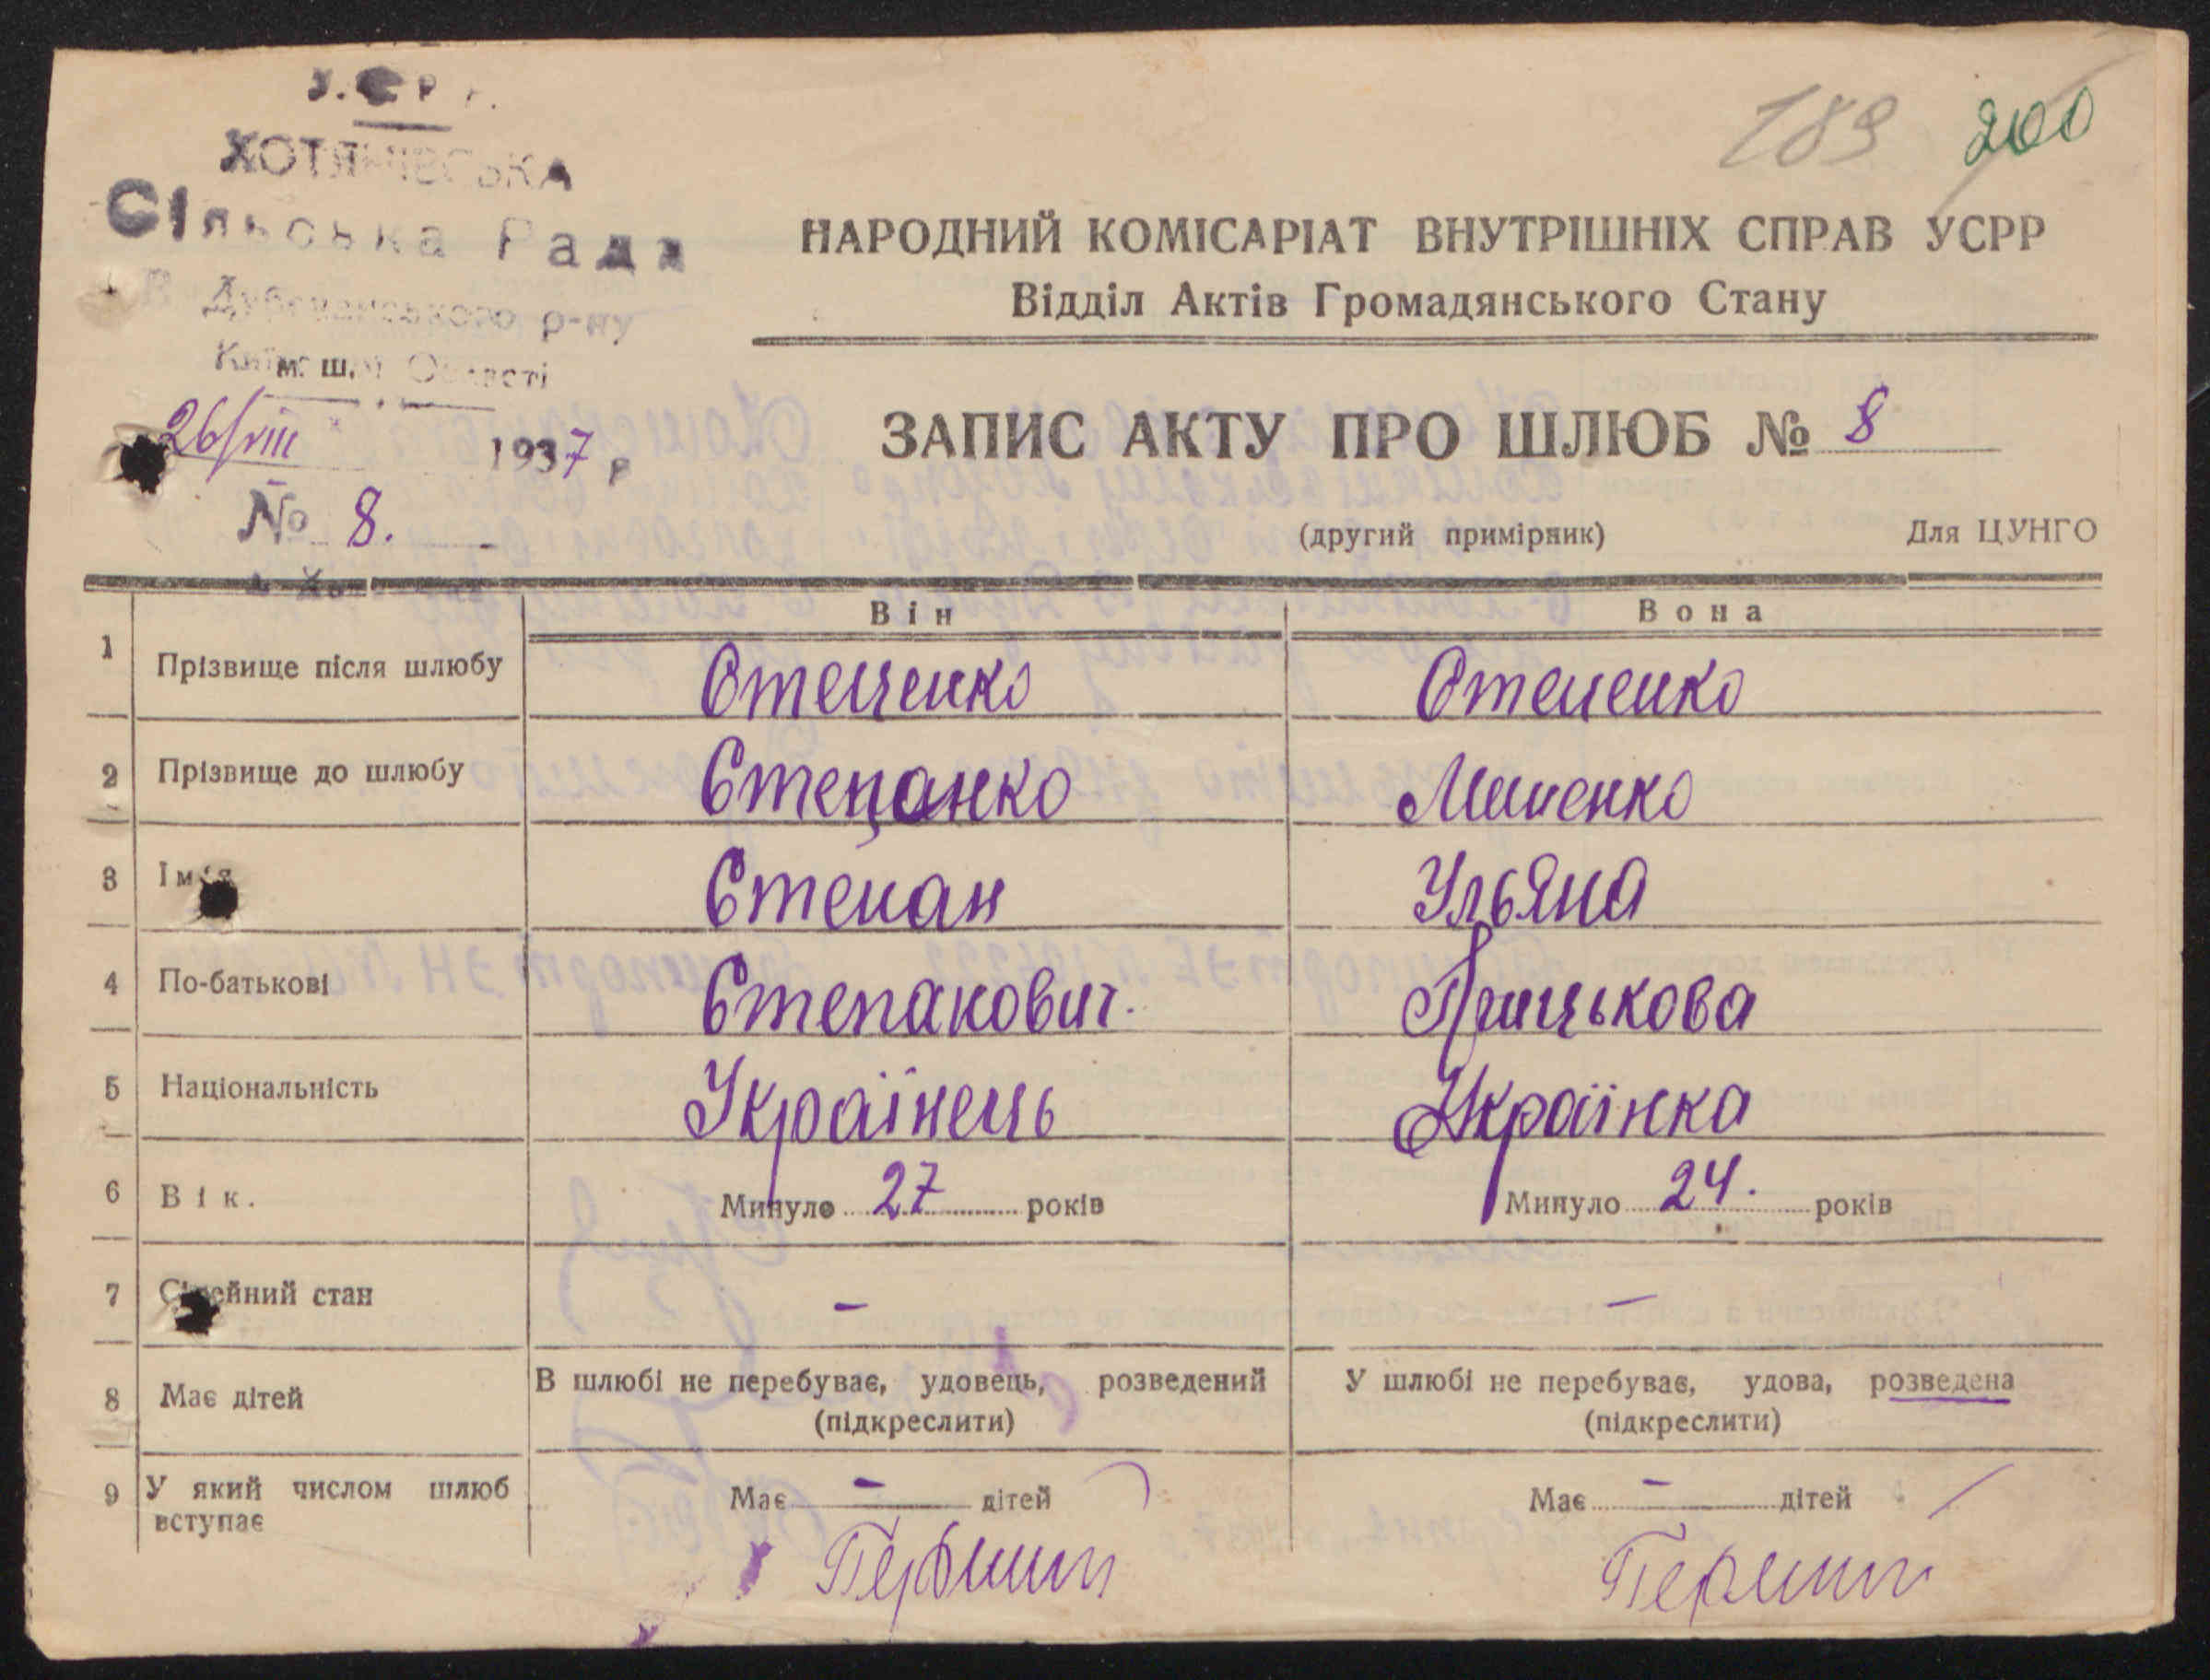 У.С.Р.Р.
ХОТЯНІВСЬКА
Сільська Рада
р-ну
м. ш. Області
26/VIII 1937 р
№ 8.
189 200
НАРОДНИЙ КОМІСАРІАТ ВНУТРІШНІХ СПРАВ УСРР
Відділ Актів Громадянського Стану
ЗАПИС АКТУ ПРО ШЛЮБ № 8
(другий примірник) Для ЦУНГО
Він Вона
1 Прізвище після шлюбу Стеценко Стеценко
2 Прізвище до шлюбу Степанко
3 Ім'я Степан Ульяна
4 По-батькові Степанович.
5 Національність Українець Українка
6 Вік. Минуло 27 років Минуло 24. років
7 Сімейний стан – –
8 Має дітей В шлюбі не перебуває, удовець, розведений У шлюбі не перебуває, удова, розведена
(підкреслити) (підкреслити)
9 У який числом шлюб Має – дітей Має – дітей
вступає
Першии Першии